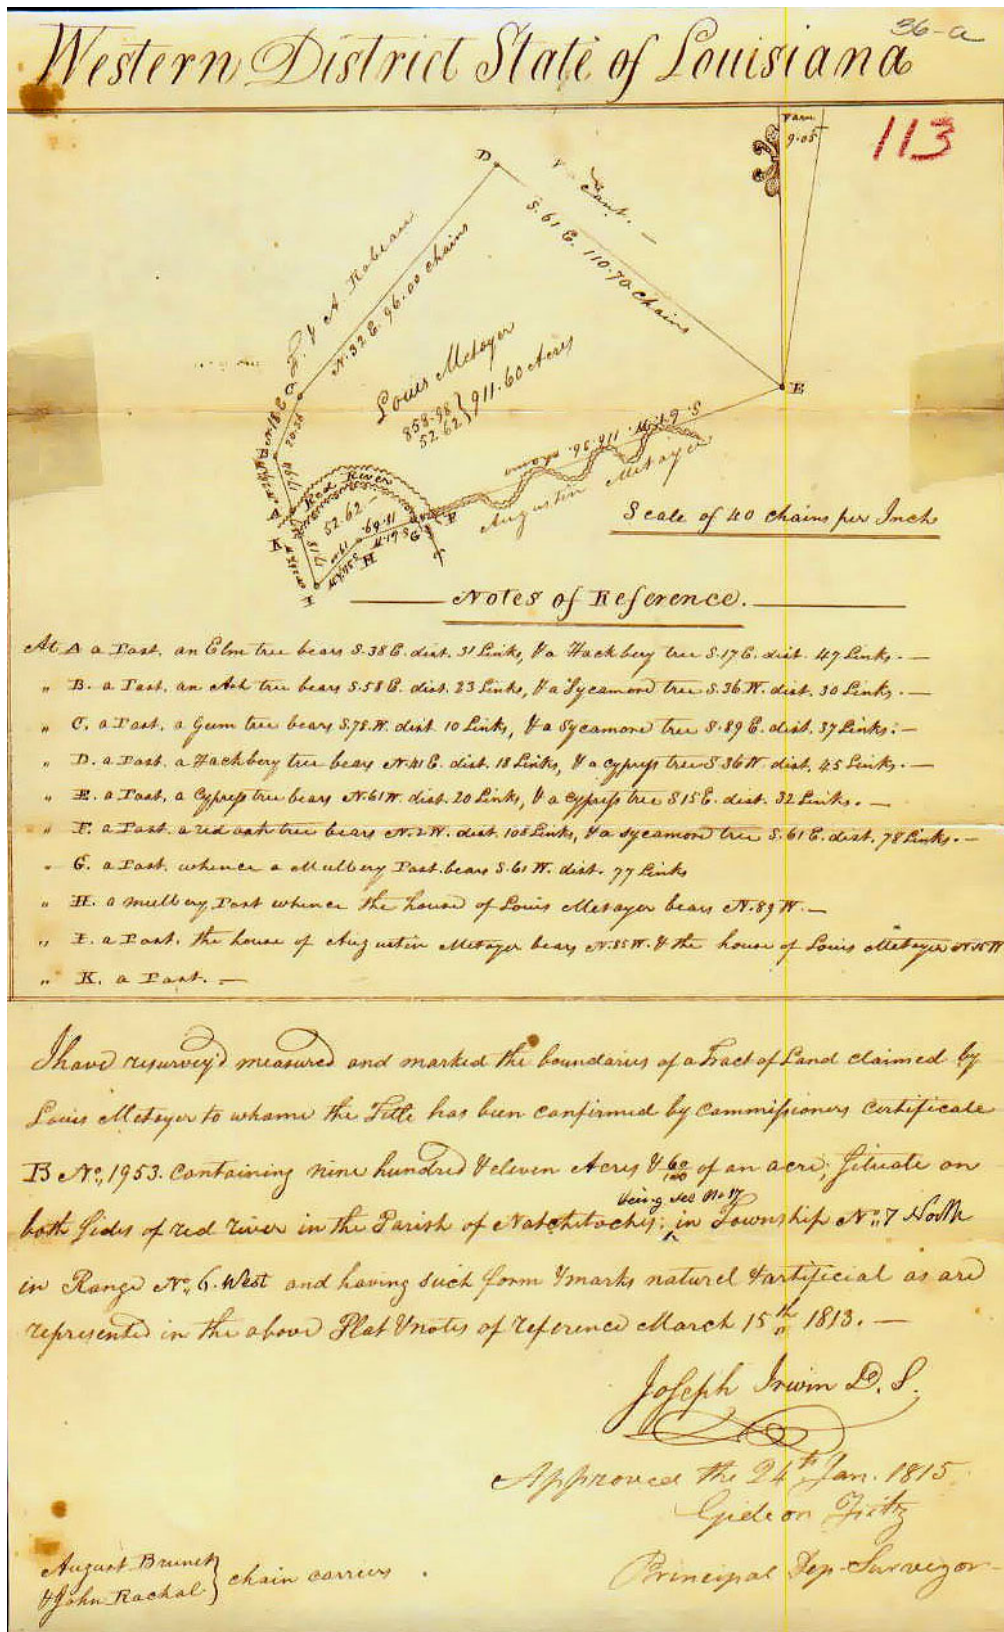 36-a
Western District State of Louisiana
Varn
9.05
113
D
Vacant. —
S. 61 E. 110.70 Chains
& A Rabeau
N. 32 E. 96.00 Chains
Louis Metoyer
858.98
52.62 } 911.60 Acres
E
C
20.50
B
A
Red River
52.62
K
I
H
G
F
11.69
S. 61 W. 116.96. chains
Augustin Metoyer
Scale of 40 chains per Inch
Notes of Reference.
At A a Post. an Elm tree bears S. 38 E. dist. 31 Links, & a Hackbery tree S. 17 E. dist. 47 Links. —
„ B. a Post. an Ash tree bears S. 58 E. dist. 23 Links, & a Sycamore tree S. 36 W. dist. 30 Links. —
„ C. a Post. a Gum tree bears S. 78. W. dist. 10 Links, & a Sycamore tree S. 89 E. dist. 37 Links. —
„ D. a Post. a Hackbery tree bears N. 41 E. dist. 18 Links, & a cypress tree S 36 W. dist. 45 Links. —
„ E. a Post. a Cypress tree bears N. 61 W. dist. 20 Links, & a cypress tree S 15 E. dist. 32 Links. —
„ F. a Post a red oak tree bears N. 2 W. dist. 108 Links, & a sycamore tree S. 61 E. dist. 78 Links. —
„ G. a Post. whence a Mulbery Post bears S. 61 W. dist. 77 Links
„ H. a mulbery Post whence the house of Louis Metoyer bears N. 89 W. —
„ I. a Post. the house of Augustin Metoyer bears N. 85 W. & the house of Louis Metoyer N. 15 W
„ K. a Post. —
I have resurvey'd measured and marked the boundaries of a Tract of Land claimed by
Louis Metoyer to whome the Title has been confirmed by Commissioners Certificate
B No., 1953. Containing nine hundred & eleven Acres & 60/100 of an acre; Situate on
being Sec No 17
both Sides of red river in the Parish of Natchitoches; in Township No. 7 North
in Range No. 6. West and having such form & marks naturel & artificial as are
represented in the above Plat & notes of reference March 15th 1813. —
Joseph Irwin D. S.
Approved the 24th Jan. 1815
Gideon Fitz
Principal Dep. Surveyor
August Brunet
& John Rachal } chain carriers .